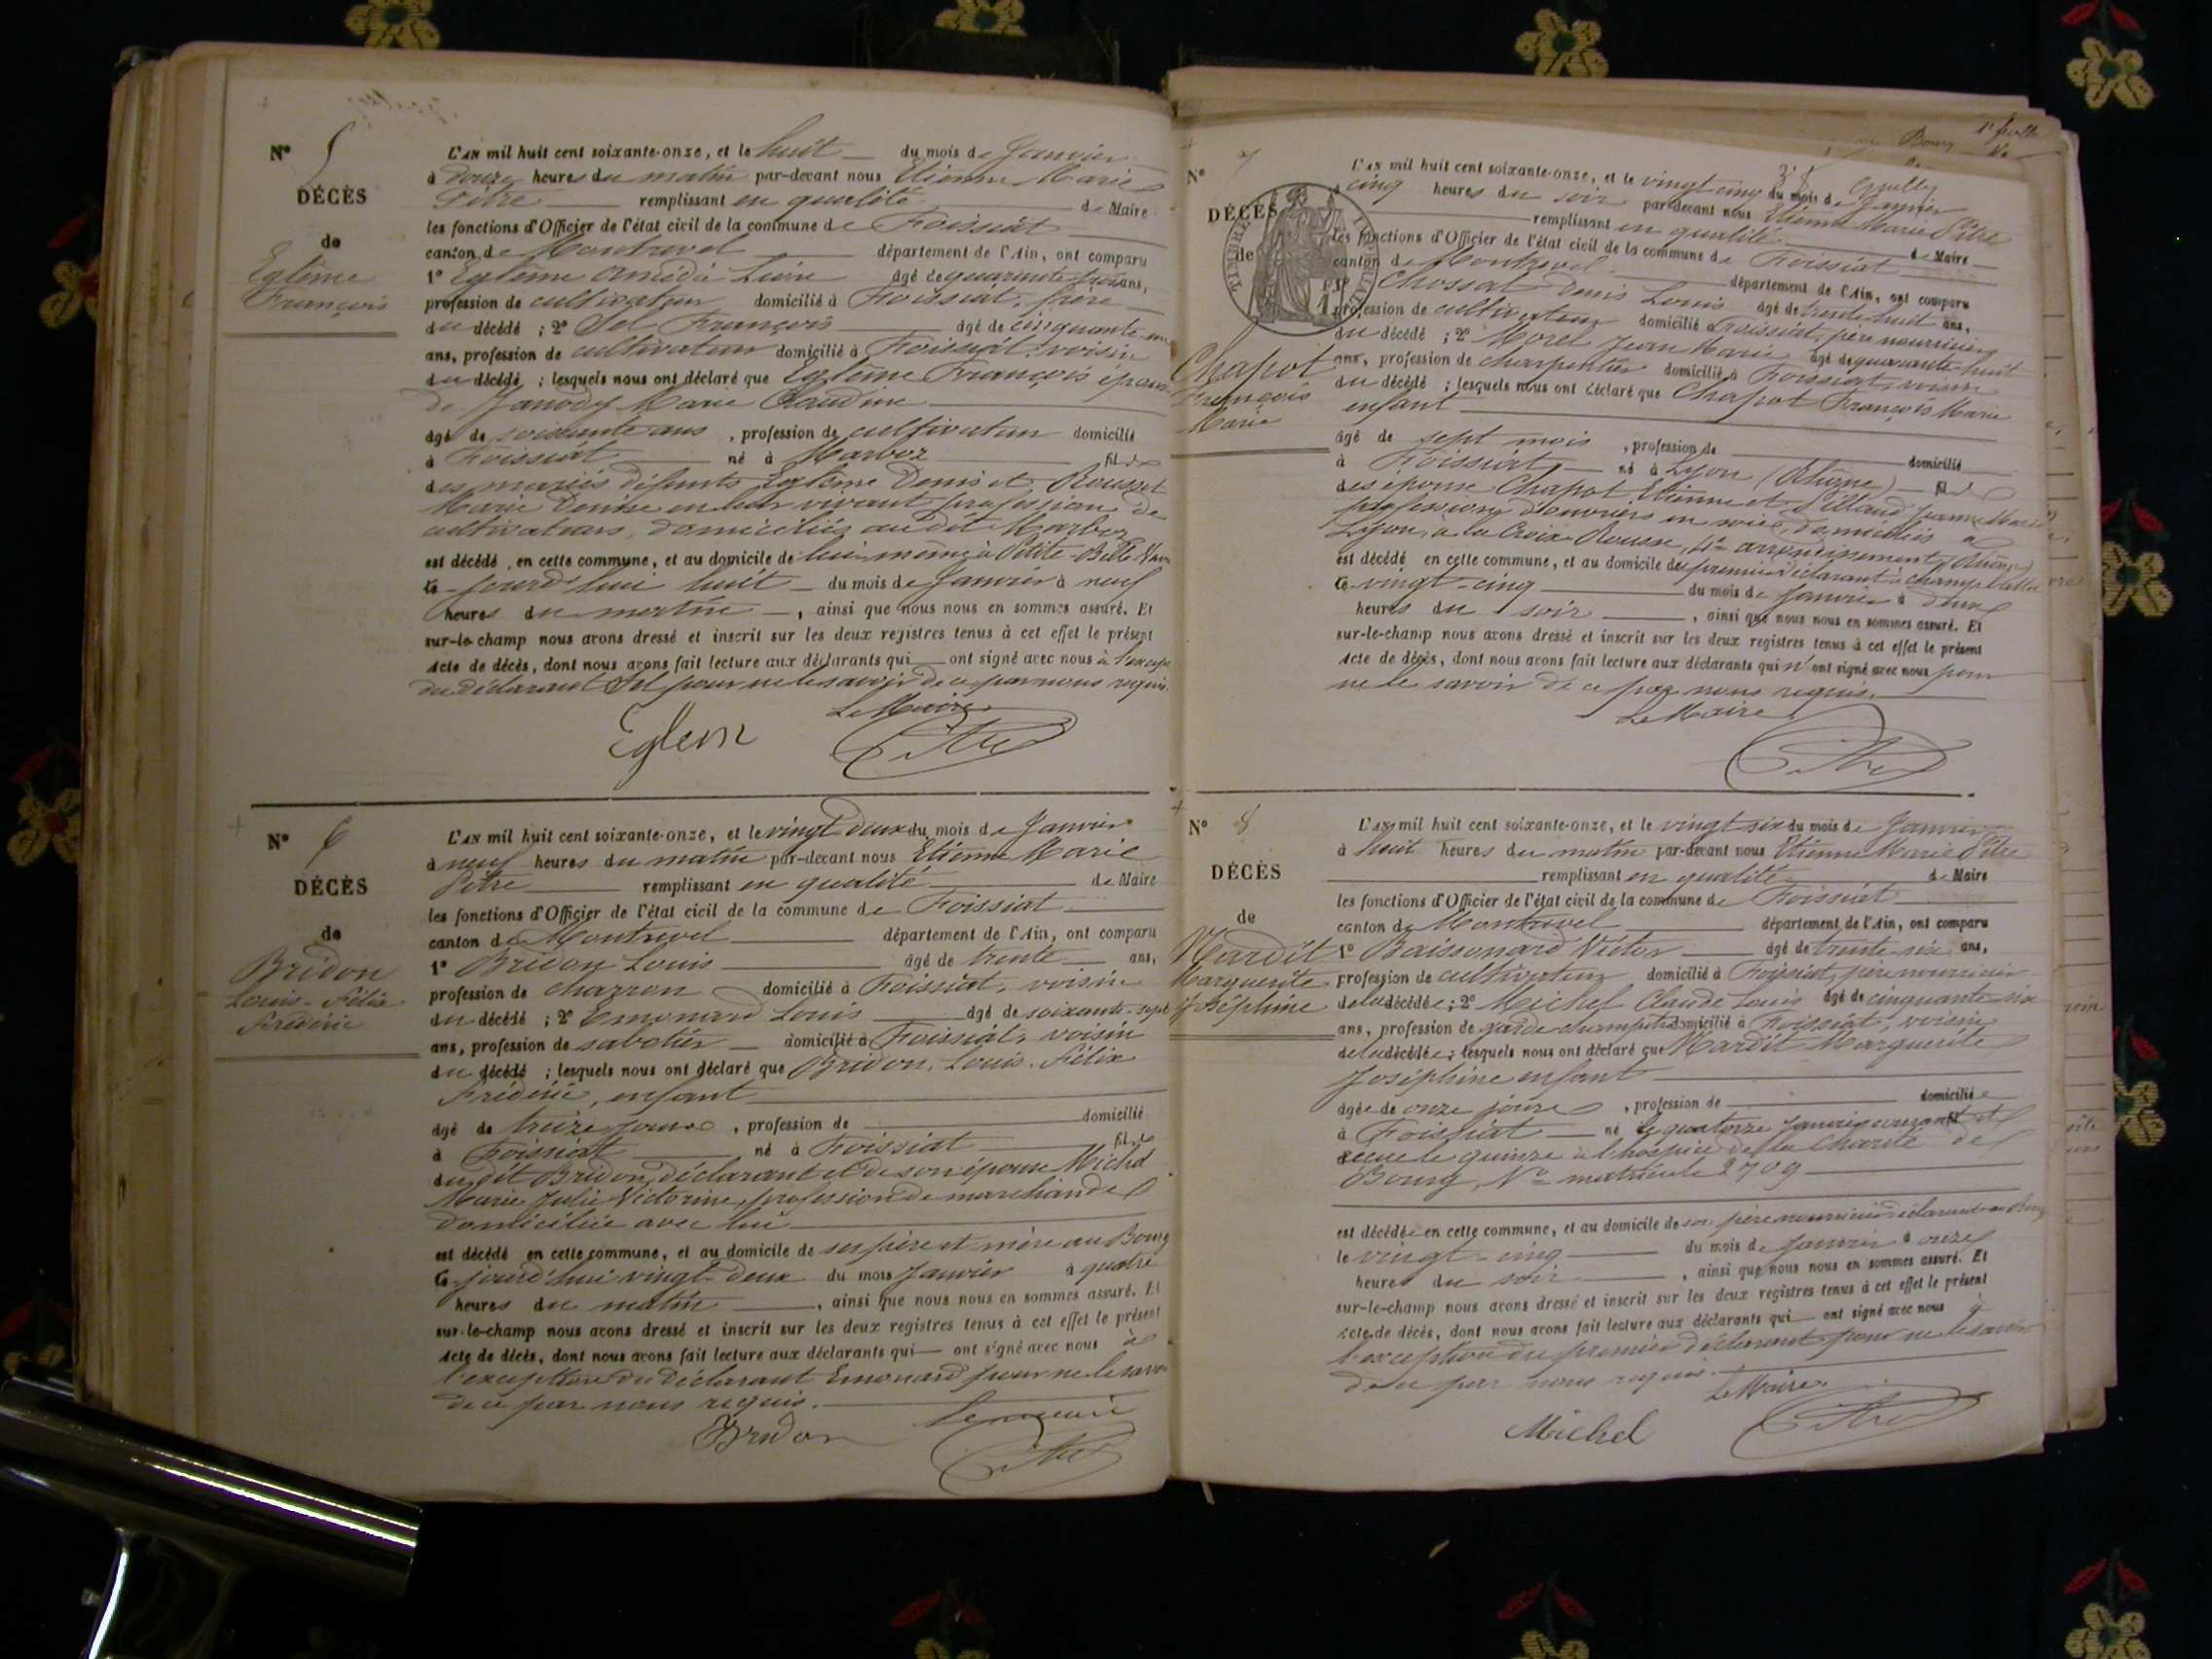 N° 5
DÉCÈS
de
Eglème
François
L'AN mil huit cent soixante-onze, et le huit du mois de Janvier
à douze heures du matin par-devant nous Etienne Marie
Pitre remplissant en qualité de Maire
les fonctions d'Officier de l'état civil de la commune de Foissiat
canton de Montrevel département de l'Ain, ont comparu
1° Eglème âgé de quarante ans,
profession de cultivateur domicilié à Foissiat, frère
du décédé ; 2° Sol François âgé de cinquante
ans, profession de cultivateur domicilié à Foissiat, voisin
du décédé ; lesquels nous ont déclaré que Eglème François époux
de Janody Marie Claudine
âgé de soixante ans, profession de cultivateur domicilié
à Foissiat né à Marboz fils
des mariés défunts Eglème Denis et Rousset
Marie Denise en leur vivant profession de
cultivateurs, domiciliés au dit Marboz
est décédé en cette commune, et au domicile de lui-même à Petite
ce jourd'hui huit du mois de Janvier à neuf
heures du matin, ainsi que nous nous en sommes assuré. Et
sur-le-champ nous avons dressé et inscrit sur les deux registres tenus à cet effet le présent
Acte de décès, dont nous avons fait lecture aux déclarants qui ont signé avec nous à
du déclarant Sol pour ne le savoir de ce par nous requis
Le Maire
Eglem Pitre
N° 6
DÉCÈS
de
Bridon
Louis-Félix
Frédéric
L'AN mil huit cent soixante-onze, et le vingt deux du mois de Janvier
à neuf heures du matin par-devant nous Etienne Marie
Pitre remplissant en qualité de Maire
les fonctions d'Officier de l'état civil de la commune de Foissiat
canton de Montrevel département de l'Ain, ont comparu
1° Bridon Louis âgé de trente ans,
profession de charron domicilié à Foissiat, voisin
du décédé ; 2° Emonard Louis âgé de soixante-sept
ans, profession de sabotier domicilié à Foissiat, voisin
du décédé ; lesquels nous ont déclaré que Bridon, Louis-Félix
Frédéric, enfant
âgé de treize jours, profession de domicilié
à Foissiat né à Foissiat fils
du dit Bridon, déclarant et de son épouse Michel
Marie Julie Victorine, profession de marchande
domiciliée avec lui
est décédé en cette commune, et au domicile de ses père et mère au Bourg
ce jourd'hui vingt-deux du mois Janvier à quatre
heures du matin, ainsi que nous nous en sommes assuré. Et
sur-le-champ nous avons dressé et inscrit sur les deux registres tenus à cet effet le présent
Acte de décès, dont nous avons fait lecture aux déclarants qui ont signé avec nous à
l'exception du déclarant Emonard pour ne le savoir
de ce par nous requis.
Bridon Le maire
Pitre
N° 7
DÉCÈS
de
Chapot
François
Marie
L'AN mil huit cent soixante-onze, et le vingt cinq du mois de Janvier
cinq heures du soir par-devant nous Etienne Marie Pitre
remplissant en qualité de Maire
les fonctions d'Officier de l'état civil de la commune de Foissiat
canton de Montrevel département de l'Ain, ont comparu
1° Chossat Denis Louis âgé de trente huit ans,
profession de cultivateur domicilié à Foissiat, père nourricier
du décédé ; 2° Morel Jean Marie âgé de quarante huit
ans, profession de charpentier domicilié à Foissiat, voisin
du décédé ; lesquels nous ont déclaré que Chapot François Marie
enfant
âgé de sept mois, profession de domicilié
à Foissiat né à Lyon (Rhône) fils
des époux Chapot Etienne et Jeanne Marie
profession d'ouvriers en soie, domiciliés à
Lyon, à la Croix-Rousse, 4e arrondissement (Rhône)
est décédé en cette commune, et au domicile du premier déclarant à
le vingt-cinq du mois de Janvier à deux
heures du soir, ainsi que nous nous en sommes assuré. Et
sur-le-champ nous avons dressé et inscrit sur les deux registres tenus à cet effet le présent
Acte de décès, dont nous avons fait lecture aux déclarants qui n'ont signé avec nous pour
ne le savoir de ce par nous requis.
Le Maire
Pitre
N° 8
DÉCÈS
de
Mardit
Marguerite
Joséphine
L'AN mil huit cent soixante-onze, et le vingt six du mois de Janvier
à huit heures du matin par-devant nous Etienne Marie Pitre
remplissant en qualité de Maire
les fonctions d'Officier de l'état civil de la commune de Foissiat
canton de Montrevel département de l'Ain, ont comparu
1° Baissonard Victor âgé de trente six ans,
profession de cultivateur domicilié à Foissiat, père nourricier
de la décédée ; 2° Michel Claude Louis âgé de cinquante six
ans, profession de garde champêtre domicilié à Foissiat, voisin
de la décédée ; lesquels nous ont déclaré que Mardit Marguerite
Joséphine enfant
âgée de onze jours, profession de domiciliée
à Foissiat né le quatorze janvier courant et
reçue le quinze à l'hospice de la Charité de
Bourg, N° matricule 2709
est décédée en cette commune, et au domicile de son père nourricier déclarant au Bourg
le vingt-cinq du mois de Janvier à onze
heures du soir, ainsi que nous nous en sommes assuré. Et
sur-le-champ nous avons dressé et inscrit sur les deux registres tenus à cet effet le présent
Acte de décès, dont nous avons fait lecture aux déclarants qui ont signé avec nous à
l'exception du premier déclarant pour ne le savoir
de ce par nous requis.
Le Maire
Michel Pitre